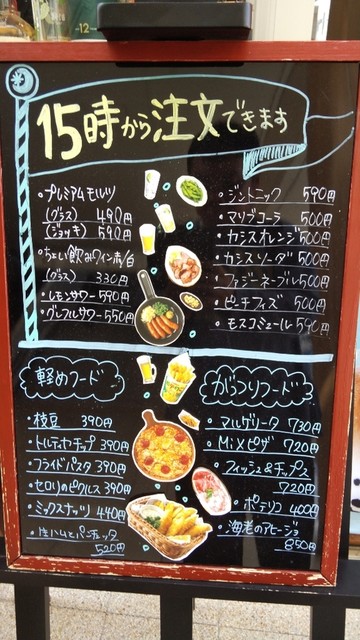 15時から注文できます
・プレミアムモルツ
(グラス) 490円
(ジョッキ) 590円
・ちょい飲みワイン赤/白
(グラス) 330円
・レモンサワー 590円
・グレフルサワー 550円
・ジントニック 590円
・マリブコーラ 500円
・カシスオレンジ 500円
・カシスソーダ 500円
・ファジーネーブル 500円
・ピーチフィズ 500円
・モスコミュール 590円
軽めフード
・枝豆 390円
・トルティヤチップ 390円
・フライドパスタ 390円
・セロリのピクルス 390円
・ミックスナッツ 440円
・生ハムとバーチェッタ
520円
がっつりフード
・マルゲリータ 730円
・MiXピザ 720円
・フィッシュ&チップス
720円
・ポテリコ 400円
・海老のアヒージョ
850円